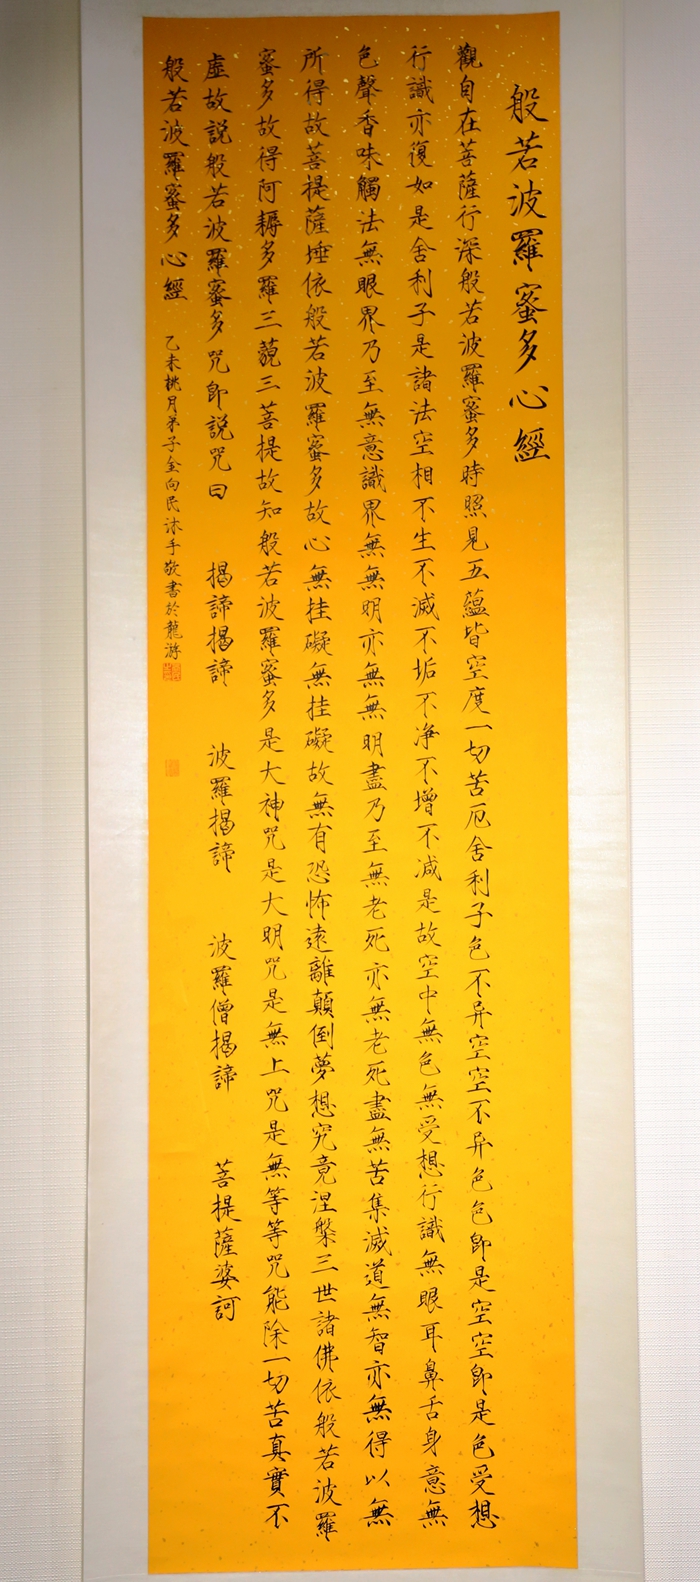 般若波羅蜜多心經
觀自在菩薩行深般若波羅蜜多時照見五蘊皆空度一切苦厄舍利子色不异空空不异色色即是空空即是色受想
行識亦復如是舍利子是諸法空相不生不滅不垢不净不增不减是故空中無色無受想行識無眼耳鼻舌身意無
色聲香味觸法無眼界乃至無意識界無無明亦無無明盡乃至無老死亦無老死盡無苦集滅道無智亦無得以無
所得故菩提薩埵依般若波羅蜜多故心無挂礙無挂礙故無有恐怖遠離顛倒夢想究竟涅槃三世諸佛依般若波羅
蜜多故得阿耨多羅三藐三菩提故知般若波羅蜜多是大神咒是大明咒是無上咒是無等等咒能除一切苦真實不
虛故説般若波羅蜜多咒即説咒曰 揭諦揭諦 波羅揭諦 波羅僧揭諦 菩提薩婆訶
般若波羅蜜多心經 乙未桃月弟子金向民沐手敬書於龍游